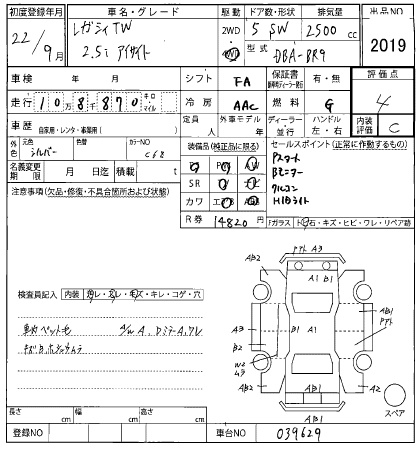 初度登録年月 車名・グレード 駆動 ドア数・形状 排気量 出品NO
22/9月 レガシィTW 2WD 5 SW 2500cc 2019
2.5i アイサイト 4WD 型式 DBA-BR9
車検 年 月 シフト FA 保証書 有・無 評価点
走行 10万8千870キロ・マイル 冷房 AAC 燃料 G 4
車歴 自家用・レンタ・事業用( ) 定員 人 外車モデル 年 ディーラー・並行 ハンドル 左・右 内装評価 C
外色 元色 シルバー 色替 カラーNO C68 装備品(純正品に限る) セールスポイント(正常に作動するもの)
名義変更期限 月 日迄 積載量 t PS PW AW Pスタート
SR ナビ TV Bモニター
注意事項(欠品・修復・不具合箇所および状態) カワ エアB クルコン
HIDライト
R券 14820 Fガラス トビ石・キズ・ヒビ・ワレ・リペア跡
アト A3
AB2 A1 B1 AB2
検査員記入 内装 スレ・コゲ・穴
A3 B1 A1
B2 アト
車内ペット毛 A/W A、DミラーA、ワレ
W2
ムラ
AB2 AB1 A2
AB1 スペア
長さ cm 幅 cm 高さ cm
登録NO 車台NO 039629